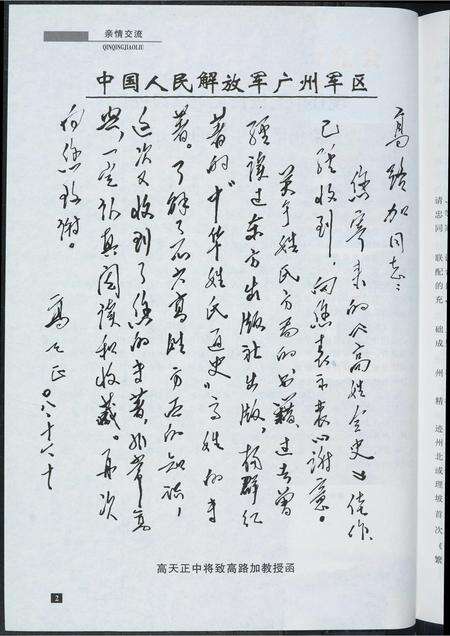 亲情交流
QINQINGJIAOLIU
中国人民解放军广州军区
高路加同志：
您寄来的《高姓全史》佳作
已经收到，向您表示衷心谢意。
关于姓氏方面的书籍，过去曾
经读过东方出版社出版，杨群红
著的《中华姓氏通史》高姓的专
著。了解了不少高姓方面的知识，
这次又收到了您的专著，非常高
兴，一定认真阅读和收藏。再次
向您致谢。
高天正
高天正中将致高路加教授函
2
请忠同
联配的充
础成
州
精
迹州北或理坡首次《繁